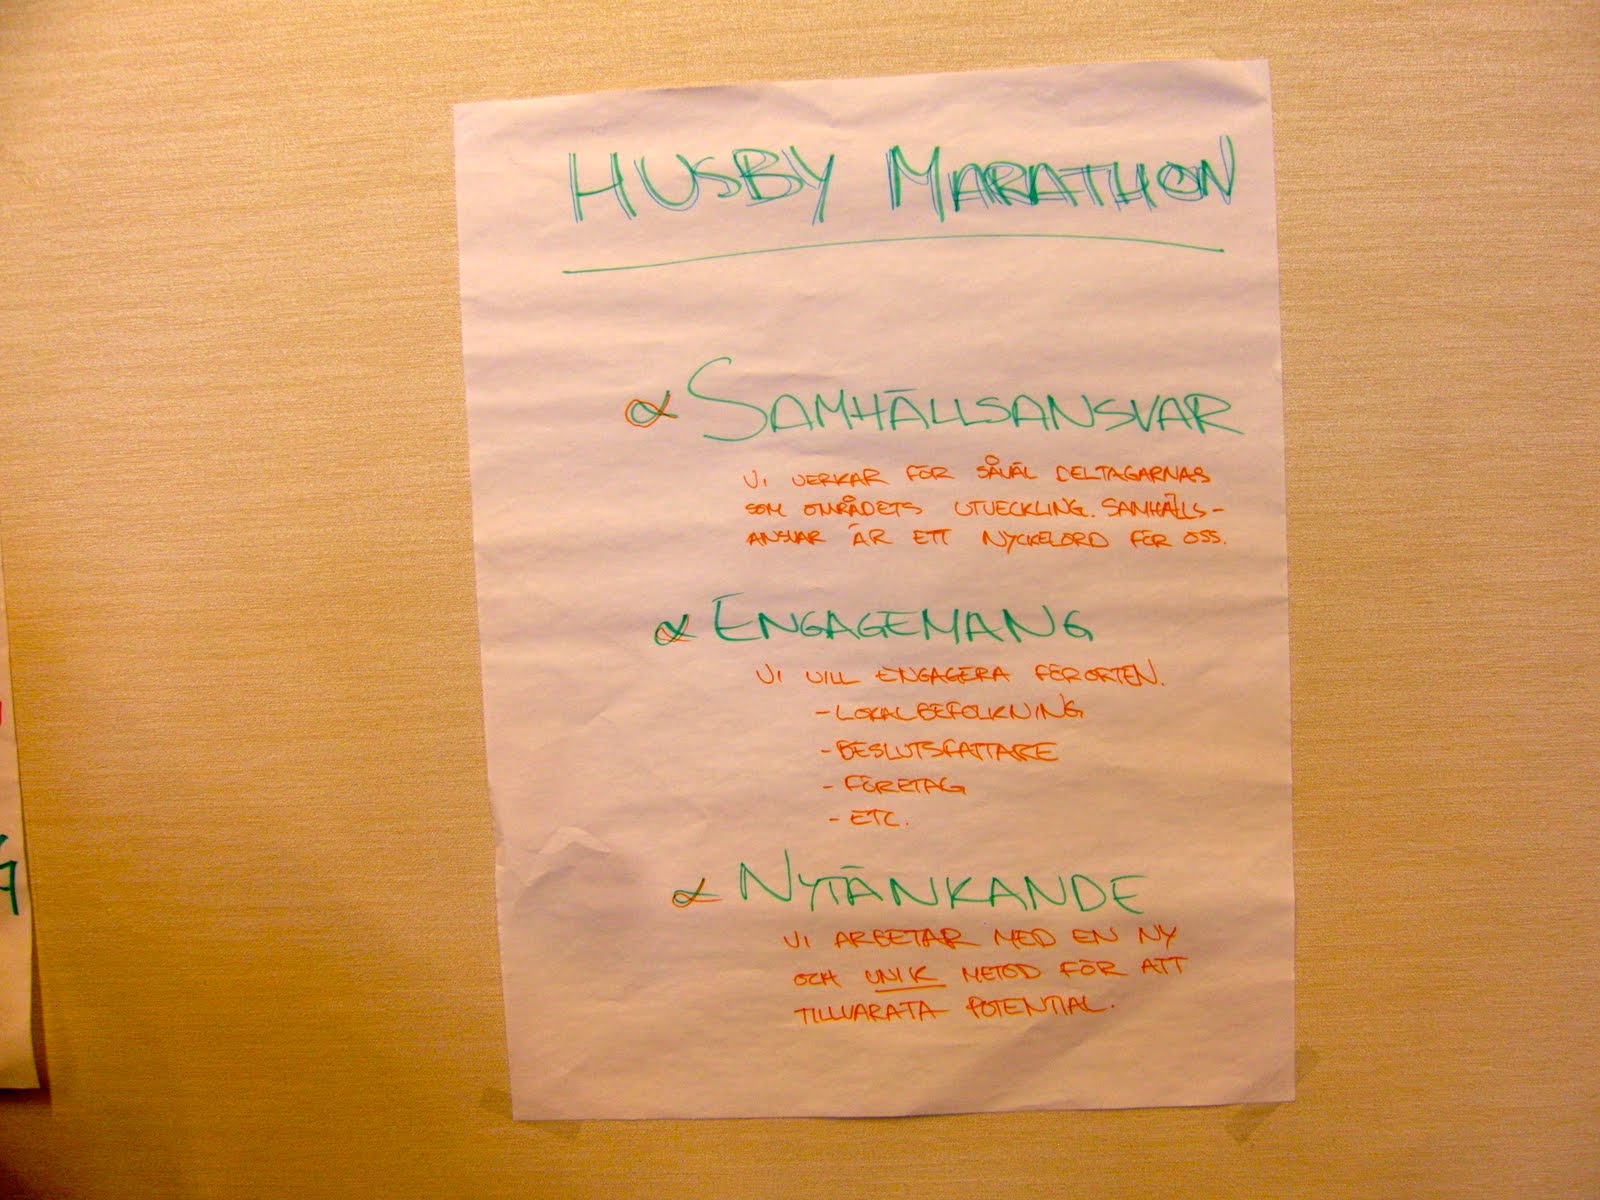 HUSBY MARATHON
SAMHÄLLSANSVAR
VI VERKAR FÖR SÅVÄL DELTAGARNAS
SOM OMRÅDETS UTVECKLING. SAMHÄLLS-
ANSVAR ÄR ETT NYCKELORD FÖR OSS.
ENGAGEMANG
VI VILL ENGAGERA FÖRORTEN.
- LOKALBEFOLKNING
- BESLUTSFATTARE
- FÖRETAG
- ETC.
NYTÄNKANDE
VI ARBETAR MED EN NY
OCH UNIK METOD FÖR ATT
TILLVARATA POTENTIAL.